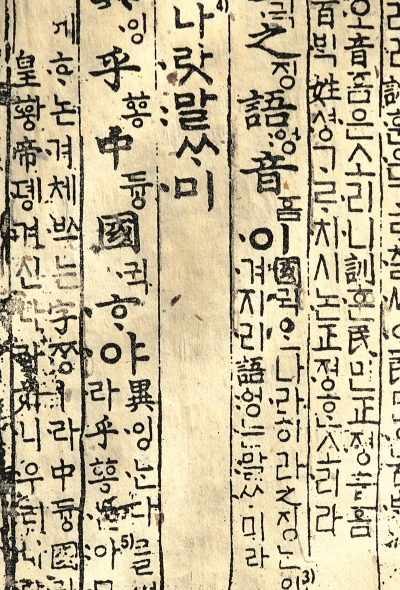 訓훈
音흠은소리니訓훈民민正졍音흠
百ᄇᆡᆨ姓셩ᄀᆞᄅᆞ치시논正졍ᄒᆞᆫ소리라
귁之징語엉音흠이
國귁ᄋᆞᆫ나라히라之징ᄂᆞᆫ입 3)
겨지라語엉는말ᄊᆞ미라
나랏말ᄊᆞ미 4)
잉乎ᅘᅩᆼ中듕國귁ᄒᆞ야
異잉ᄂᆞᆫ다ᄅᆞᆯ
라乎ᅘᅩᆼᄂᆞᆫ아 5)
게ᄒᆞ논겨체ᄡᅳ는字ᄍᆞᆼㅣ라中듕國
皇황帝뎽겨신나라히니우리나